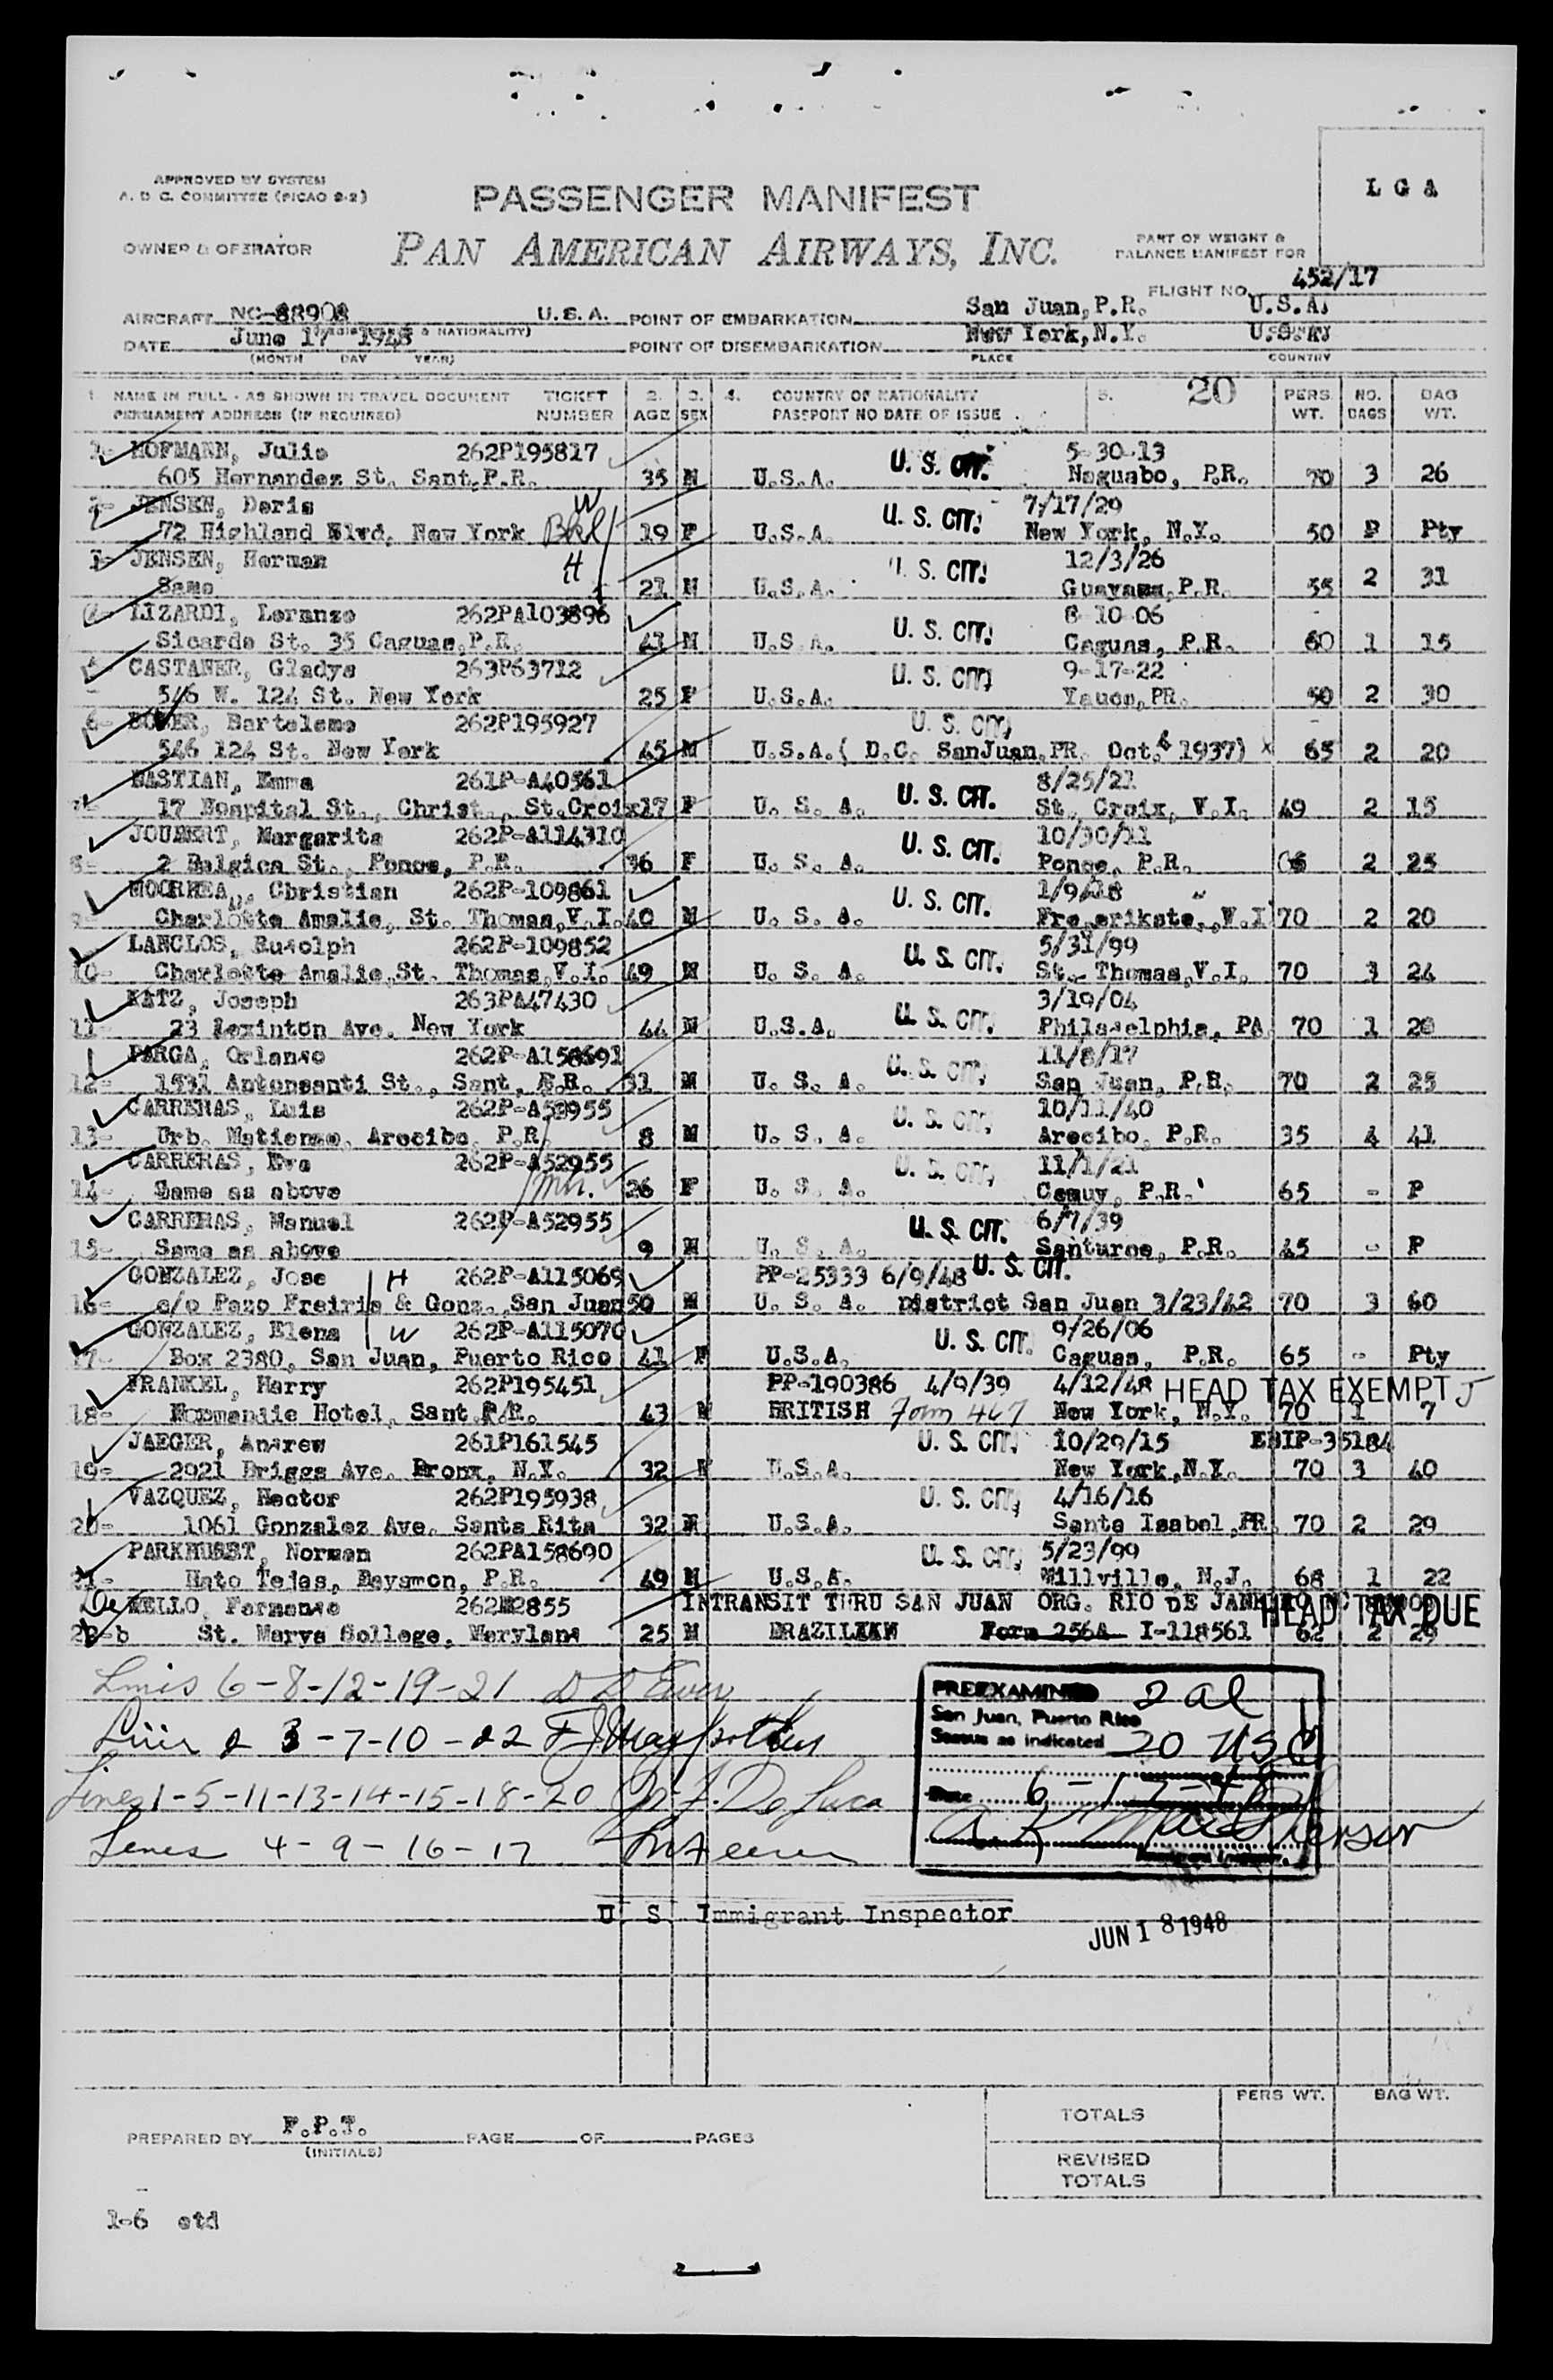 APPROVED BY SYSTEM
A. D C. COMMITTEE (PICAO 2-2)
PASSENGER MANIFEST
L G A
OWNER & OPERATOR
PAN AMERICAN AIRWAYS, INC.
PART OF WEIGHT &
BALANCE MANIFEST FOR
FLIGHT NO. 452/17
AIRCRAFT NC-88908 U.S.A. POINT OF EMBARKATION San Juan, P.R. U.S.A.
DATE June 17 1948 POINT OF DISEMBARKATION New York, N.Y. U.S.A.
(MONTH DAY YEAR) PLACE COUNTRY
1. NAME IN FULL - AS SHOWN IN TRAVEL DOCUMENT TICKET 2. 3. 4. COUNTRY OF NATIONALITY 5. 20 PERS. NO. BAG
PERMANENT ADDRESS (IF REQUIRED) NUMBER AGE SEX PASSPORT NO DATE OF ISSUE WT. BAGS WT.
1- HOFMANN, Julio 262P195817 5-30-13
605 Hernandez St. Sant, P.R. 35 M U.S.A. U. S. CIT. Naguabo, P.R. 70 3 26
2- JENSEN, Doris W 7/17/29
72 Highland Blvd, New York Bkl 19 F U.S.A. U. S. CIT. New York, N.Y. 50 P Pty
3- JENSEN, Herman H 12/3/26
Same 21 M U.S.A. U. S. CIT. Guayama, P.R. 55 2 31
4- LIZARDI, Loranzo 262PA103896 8-10-06
Sicardo St. 35 Caguas, P.R. 41 M U.S.A. U. S. CIT. Caguas, P.R. 60 1 15
5- CASTANER, Gladys 263P63712 9-17-22
546 W. 124 St. New York 25 F U.S.A. U. S. CIT. Yauco, PR. 50 2 30
6- Bartolome 262P195927 U. S. CIT.
546 124 St. New York 45 M U.S.A. ( D.C. SanJuan, PR. Oct. 6 1937) X 65 2 20
BASTIAN, Emma 261P-A40561 8/25/21
7- 17 Hospital St., Christ., St.Croix 17 F U. S. A. U. S. CIT. St. Croix, V.I. 49 2 15
JOUBERT, Margarita 262P-A114310 10/30/11
8- 2 Belgica St., Ponce, P.R. 36 F U. S. A. U. S. CIT. Ponce, P.R. 2 25
MOORHEA, Christian 262P-109861 1/9/18
9- Charlotte Amalie, St. Thomas, V.I. 40 M U. S. A. U. S. CIT. Frederikste., V.I 70 2 20
LANCLOS, Rudolph 262P-109852 5/31/99
10- Charlotte Amalie, St. Thomas, V.I. 49 M U. S. A. U. S. CIT. St. Thomas, V.I. 70 3 24
KATZ, Joseph 263PA47430 3/19/04
11- 23 Lexinton Ave. New York 44 M U.S.A. U. S. CIT. Philadelphia, PA. 70 1 20
PARGA, Orlando 262P-A158691 11/8/17
12- 1531 Antonsanti St., Sant, P.R. 31 M U. S. A. U. S. CIT. San Juan, P.R. 70 2 25
CARRERAS, Luis 262P-A52955 10/11/40
13- Urb. Matienzo, Arecibo, P.R. 8 M U. S. A. U. S. CIT. Arecibo, P.R. 35 4 41
CARRERAS, Eva 262P-A52955 11/1/21
14- Same as above 26 F U. S. A. U. S. CIT. Camuy, P.R. 65 - P
CARRERAS, Manuel 262P-A52955 6/7/39
15- Same as above 9 M U. S. A. U. S. CIT. Santurce, P.R. 45 - P
GONZALEZ, Jose H 262P-A115069 PP-25333 6/9/48 U. S. CIT.
16- c/o Pazo Freiria & Gonz., San Juan 50 M U. S. A. District San Juan 3/23/42 70 3 60
GONZALEZ, Elena W 262P-A115070 9/26/06
17- Box 2380, San Juan, Puerto Rico 41 F U.S.A. U. S. CIT. Caguas, P.R. 65 - Pty
FRANKEL, Harry 262P195451 PP-190386 4/9/39 4/12/48 HEAD TAX EXEMPT
18- Normandie Hotel, Sant P.R. 43 M BRITISH Form 467 New York, N.Y. 70 1 7
JAEGER, Andrew 261P161545 U. S. CIT. 10/29/15 EBIP-35184
19- 2921 Briggs Ave. Bronx, N.Y. 32 M U.S.A. New York, N.Y. 70 3 40
VAZQUEZ, Hector 262P195938 U. S. CIT. 4/16/16
20- 1061 Gonzalez Ave. Santa Rita 32 M U.S.A. Santa Isabel, PR. 70 2 29
PARKHURST, Norman 262PA158690 U. S. CIT. 5/23/99
21- Hato Tejas, Bayamon, P.R. 49 M U.S.A. Millville, N.J. 68 1 22
MELLO, Fernando INTRANSIT THRU SAN JUAN ORG. RIO DE HEAD TAX DUE
22-b St. Marys College, Maryland 25 M BRAZILIAN Form 256A I-118561 62 2 29
Lines 6-8-12-19-21
2 3-7-10-22
Lines 1-5-11-13-14-15-18-20 De Luca
Lines 4-9-16-17
PREEXAMINED 2 al
San Juan, Puerto Rico
Status as indicated 20 USC
Date 6-17-48
U. S. Immigrant Inspector
JUN 18 1948
PERS WT. BAG WT.
TOTALS
PREPARED BY F.P.T. PAGE OF PAGES
(INITIALS)
REVISED
TOTALS
1-6 std